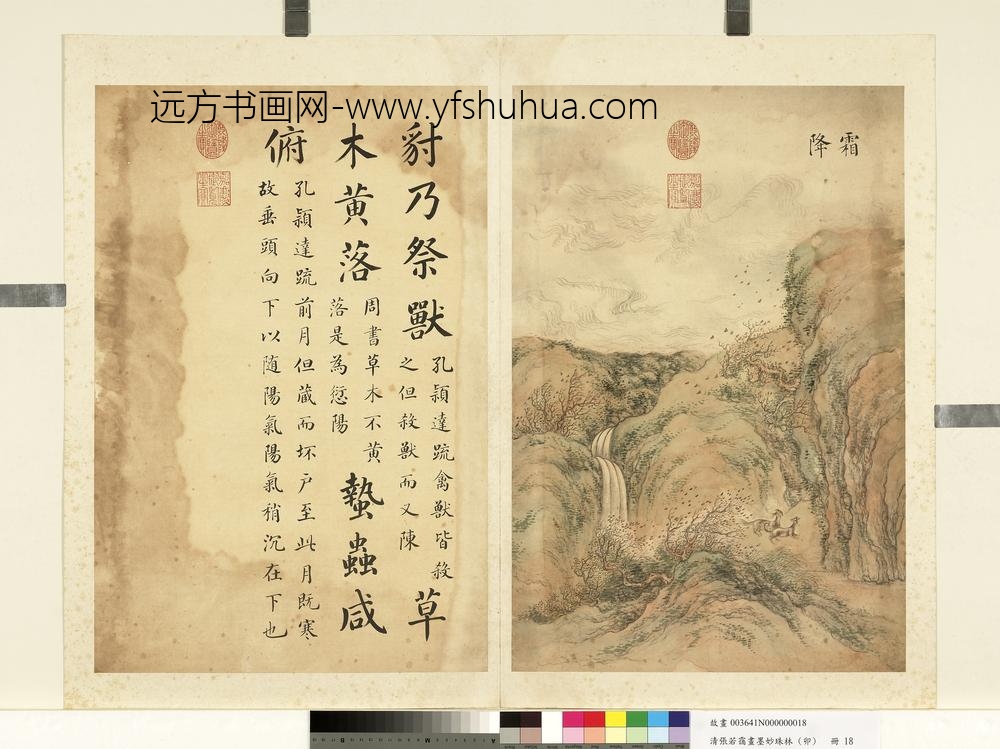 远方书画网-www.yfshuhua.com
霜
降
豺乃祭獸孔穎達疏禽獸皆殺
之但殺獸而又陳草
木黄落周書草木不黄
落是為愆陽蟄蟲咸
俯孔穎達疏前月但藏而坏户至此月既寒
故垂頭向下以随陽氣陽氣稍沉在下也
故畫 003641N000000018
清張若靄畫墨妙珠林（卯） 冊 18